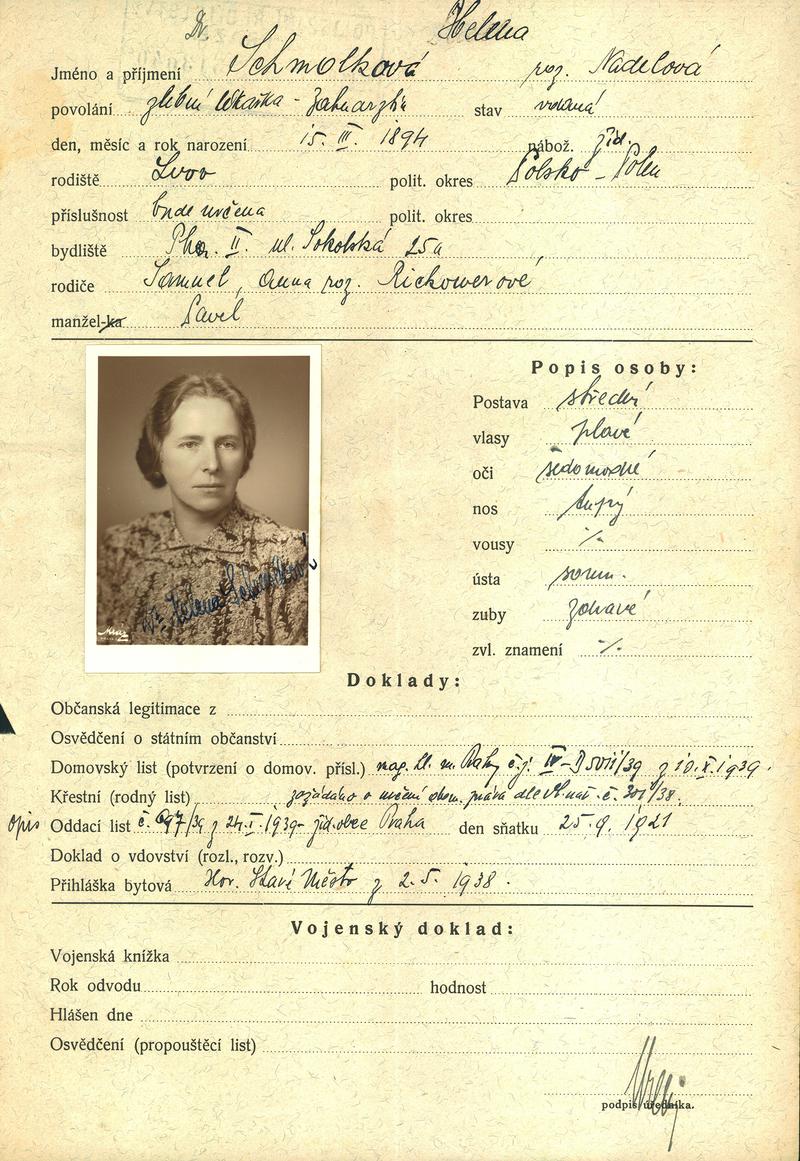 Dr. Helena
Jméno a příjmení Schmolková roz. Nadelová
povolání zubní lékařka - stav vdaná
den, měsíc a rok narození 15. III. 1894 nábož. žid.
rodiště Lvov polit. okres Polsko - Polen
příslušnost bude určena polit. okres
bydliště Pha. II. ul. Sokolská 25a
rodiče Samuel, Anna roz. Rickowerové
manžel-ka Pavel
Popis osoby:
Postava střední
vlasy plavé
oči šedomodré
nos tupý
vousy ./.
ústa soum.
zuby zdravé
zvl. znamení ./.
Dr. Helena Schmolková
Doklady:
Občanská legitimace z
Osvědčení o státním občanství
Domovský list (potvrzení o domov. přísl.) mag. hl. m. Prahy č.j. IV- z 10.X.1939.
Křestní (rodný list) zažádáno o určení dom. práva dle vl. nař. č.
opis Oddací list č. 697/39 z 24.I.1939- žid. obce Praha den sňatku 25.9. 1921
Doklad o vdovství (rozl., rozv.)
Přihláška bytová Hor. Staré Město z 2.5. 1938.
Vojenský doklad:
Vojenská knížka
Rok odvodu hodnost
Hlášen dne
Osvědčení (propouštěcí list)
podpis úředníka.